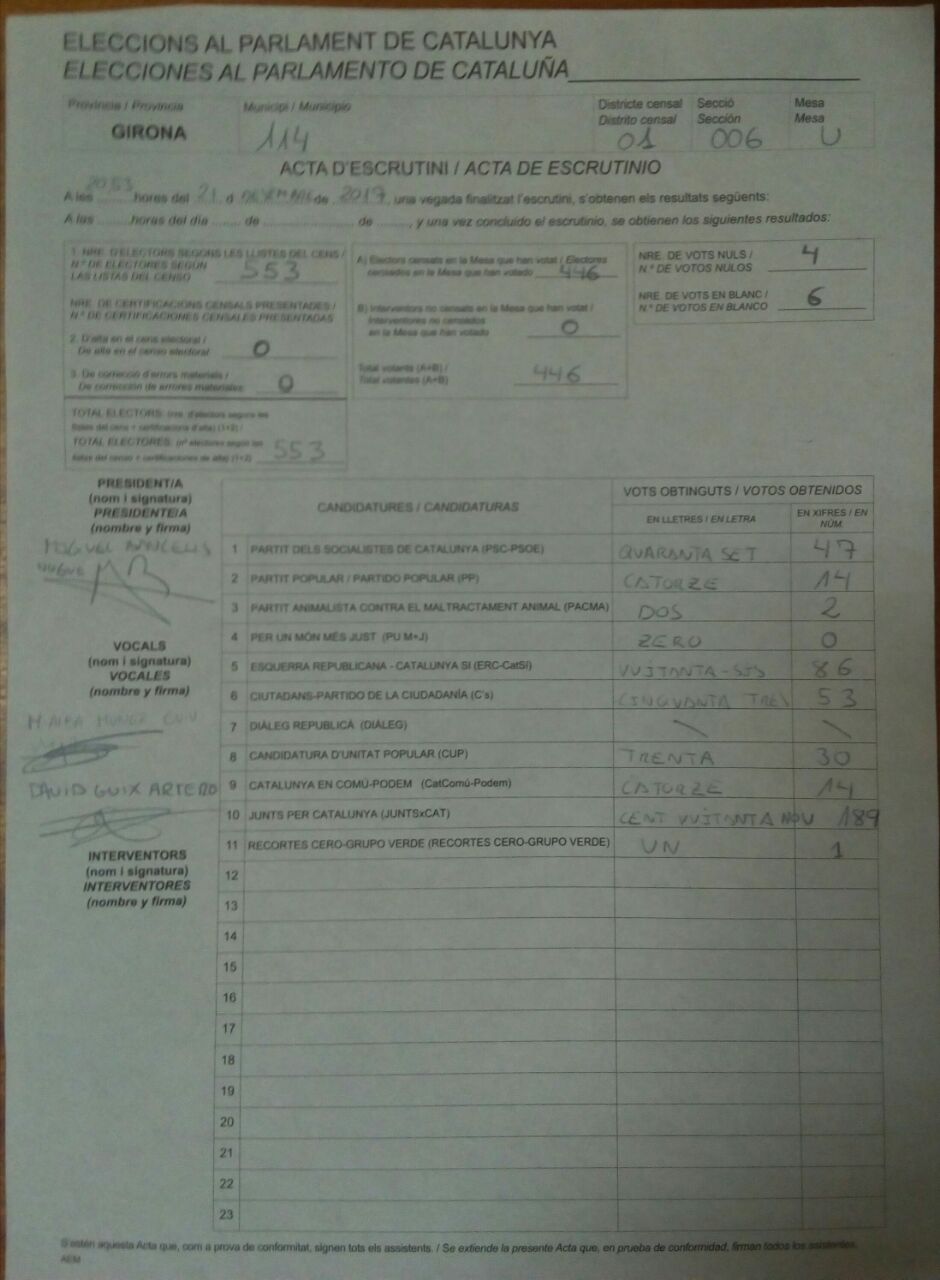 ELECCIONS AL PARLAMENT DE CATALUNYA
ELECCIONES AL PARLAMENTO DE CATALUÑA
Província / Provincia
GIRONA
Municipi / Municipio
114
Districte censal
Distrito censal
01
Secció
Sección
006
Mesa
Mesa
U
ACTA D'ESCRUTINI / ACTA DE ESCRUTINIO
A les 20:53 hores del 21 d DESEMBRE de 2017, una vegada finalitzat l'escrutini, s'obtenen els resultats següents:
A las ........ horas del día ....... de ........................ de ........, y una vez concluido el escrutinio, se obtienen los siguientes resultados:
1. NRE. D'ELECTORS SEGONS LES LLISTES DEL CENS /
N.º DE ELECTORES SEGÚN
LAS LISTAS DEL CENSO 553
NRE. DE CERTIFICACIONS CENSALS PRESENTADES /
N.º DE CERTIFICACIONES CENSALES PRESENTADAS
2. D'alta en el cens electoral /
De alta en el censo electoral 0
3. De correcció d'errors materials /
De corrección de errores materiales 0
TOTAL ELECTORS: (nre. d'electors segons les
llistes del cens + certificacions d'alta) (1+2) /
TOTAL ELECTORES: (nº electores según las
listas del censo + certificaciones de alta) (1+2) 553
A) Electors censats en la Mesa que han votat / Electores
censados en la Mesa que han votado 446
B) Interventors no censats en la Mesa que han votat /
Interventores no censados
en la Mesa que han votado 0
Total votants (A+B) /
Total votantes (A+B) 446
NRE. DE VOTS NULS /
N.º DE VOTOS NULOS 4
NRE. DE VOTS EN BLANC /
N.º DE VOTOS EN BLANCO 6
PRESIDENT/A
(nom i signatura)
PRESIDENTE/A
(nombre y firma)
MIGUEL
VOCALS
(nom i signatura)
VOCALES
(nombre y firma)
DAVID GUIX ARTERO
INTERVENTORS
(nom i signatura)
INTERVENTORES
(nombre y firma)
CANDIDATURES / CANDIDATURAS
VOTS OBTINGUTS / VOTOS OBTENIDOS
EN LLETRES / EN LETRA
EN XIFRES / EN NÚM.
1 PARTIT DELS SOCIALISTES DE CATALUNYA (PSC-PSOE) QUARANTA SET 47
2 PARTIT POPULAR / PARTIDO POPULAR (PP) CATORZE 14
3 PARTIT ANIMALISTA CONTRA EL MALTRACTAMENT ANIMAL (PACMA) DOS 2
4 PER UN MÓN MÉS JUST (PU M+J) ZERO 0
5 ESQUERRA REPUBLICANA - CATALUNYA SÍ (ERC-CatSí) VUITANTA-SIS 86
6 CIUTADANS-PARTIDO DE LA CIUDADANÍA (C's) CINQUANTA TRES 53
7 DIÀLEG REPUBLICÀ (DIÀLEG) \ \
8 CANDIDATURA D'UNITAT POPULAR (CUP) TRENTA 30
9 CATALUNYA EN COMÚ-PODEM (CatComú-Podem) CATORZE 14
10 JUNTS PER CATALUNYA (JUNTSxCAT) CENT VUITANTA NOU 189
11 RECORTES CERO-GRUPO VERDE (RECORTES CERO-GRUPO VERDE) UN 1
12
13
14
15
16
17
18
19
20
21
22
23
S'estén aquesta Acta que, com a prova de conformitat, signen tots els assistents. / Se extiende la presente Acta que, en prueba de conformidad, firman todos los asistentes.